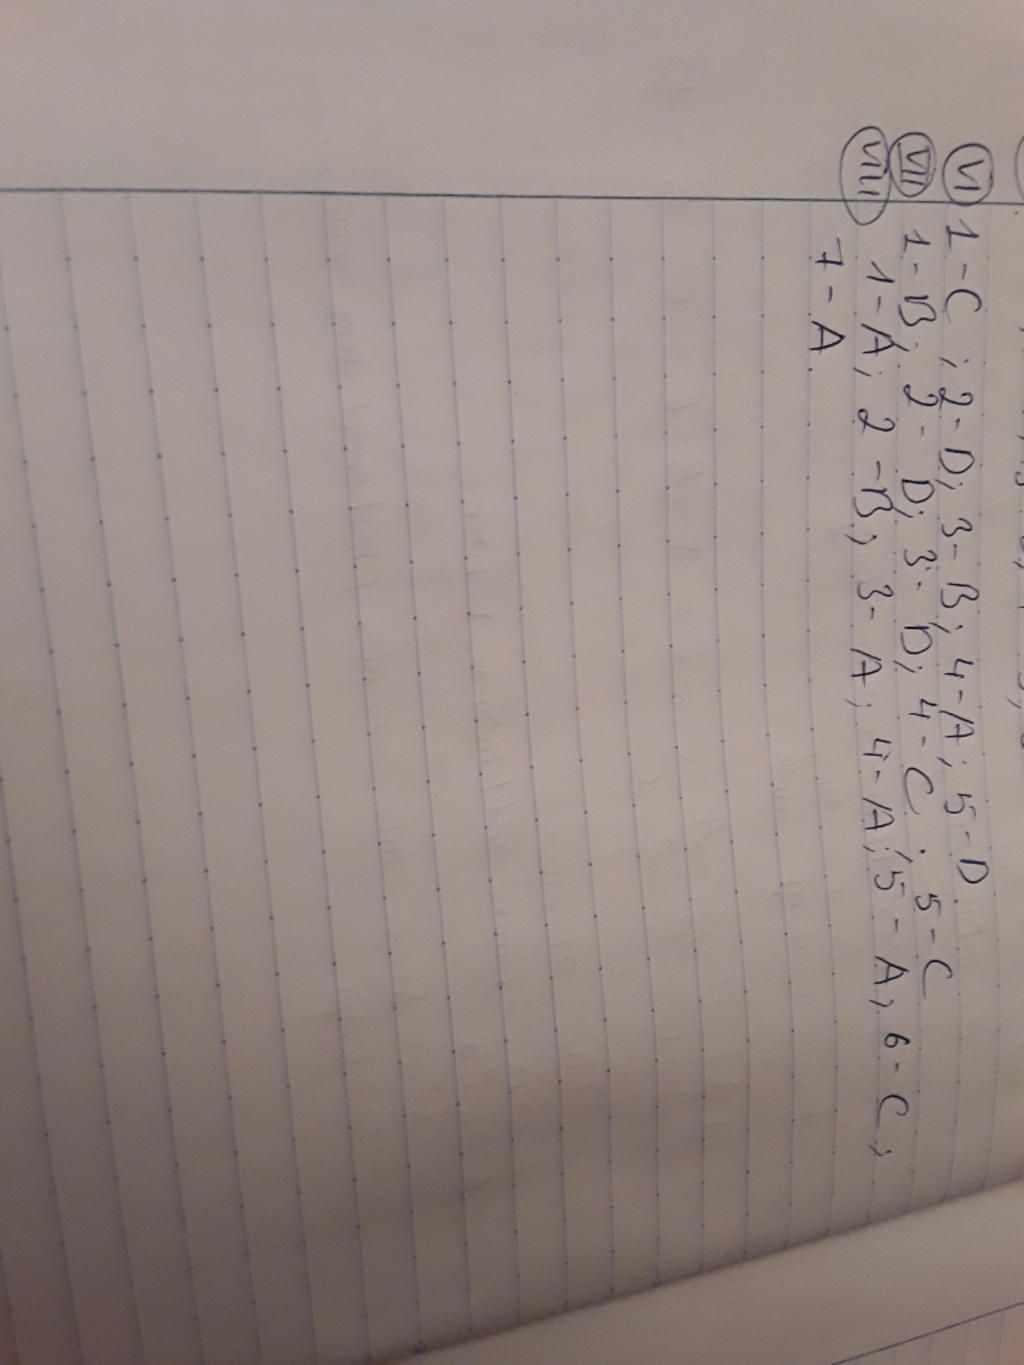 VI 1-C; 2-D; 3-B; 4-A; 5-D.
VII 1-B; 2-D; 3-D; 4-C; 5-C
VIII 1-A; 2-B; 3-A; 4-A; 5-A; 6-C;
7-A.